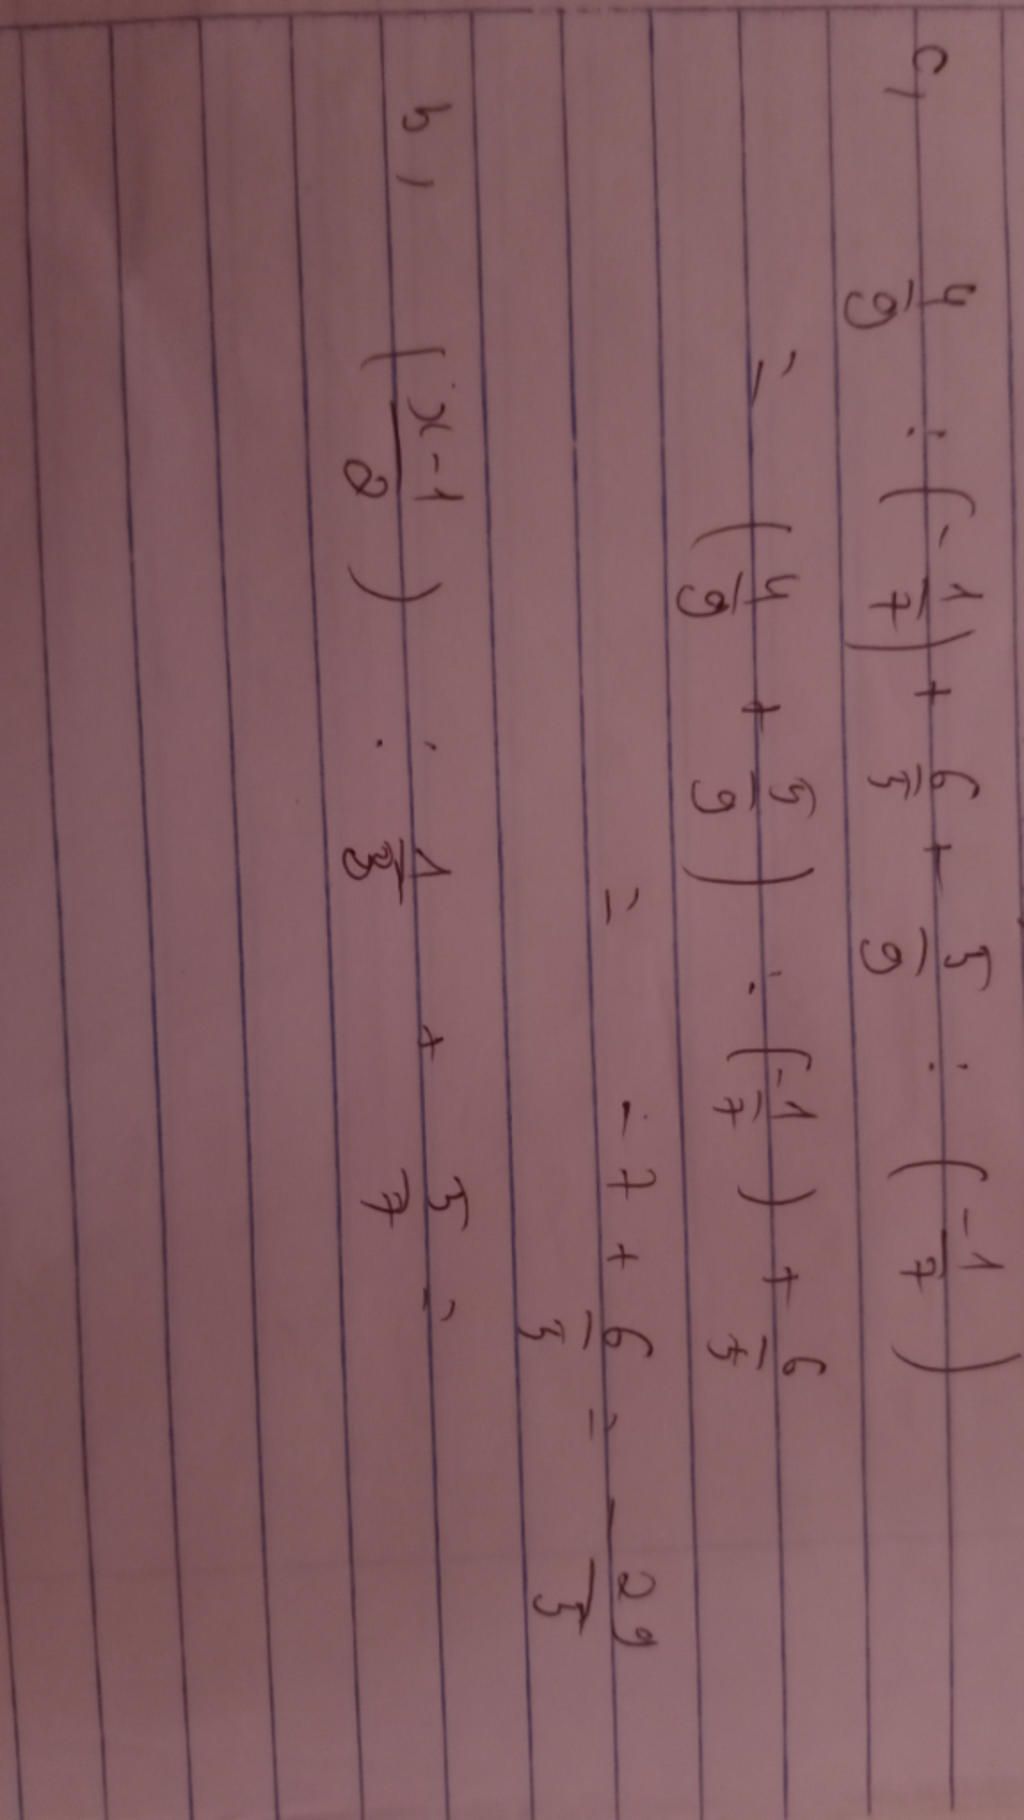 c, 4/9 : (-1/7) + 6/5 + 5/9 : (-1/7)
= (4/9 + 5/9) : (-1/7) + 6/5
= -7 + 6/5 = -29/5
b, (x-1/2) : 1/3 + 5/7 =